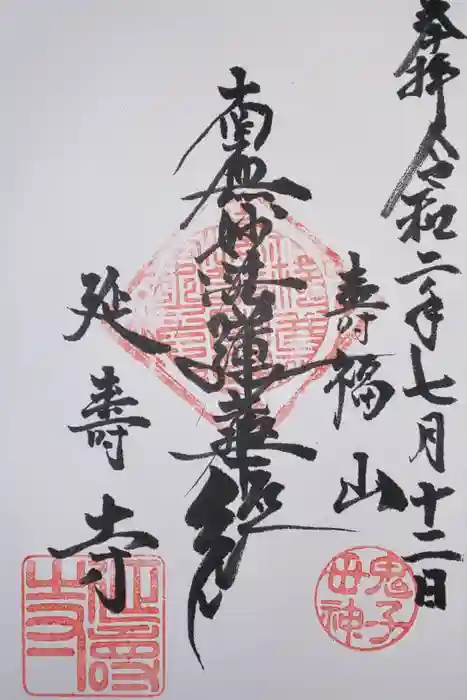 奉拝 令和二年七月十二日
寿福山
南無妙法蓮華経
延寿寺
鬼子母神
延寿寺